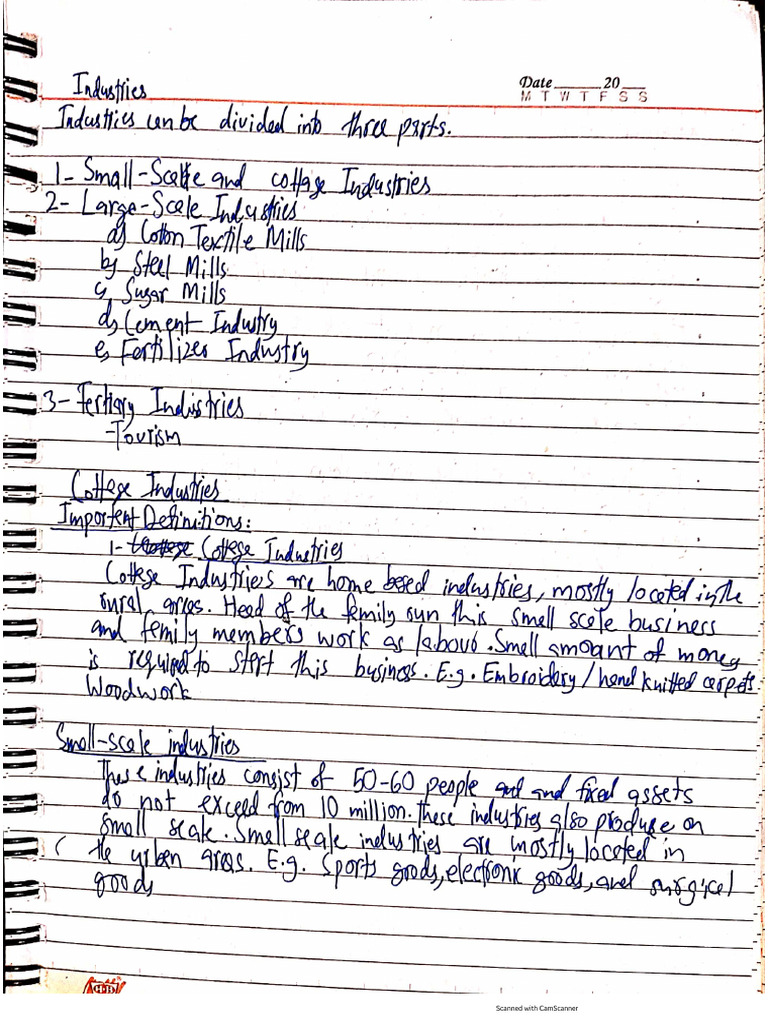 Industries
Date 20
M T W T F S S
Industries can be divided into three parts.
1- Small-Scale and cottage Industries
2- Large-Scale Industries
a) Cotton Textile Mills
b) Steel Mills
c) Sugar Mills
d) Cement Industry
e) Fertilizer Industry
3- Tertiary Industries
-Tourism
Cottage Industries
Important Definitions:
1- Cottage Industries
Cottage Industries are home based industries, mostly located in the
rural areas. Head of the family run this small scale business
and family members work as labour. Small amount of money
is required to start this business. E.g. Embroidery / hand knitted carpets.
Woodwork
Small-scale industries
These industries consist of 50-60 people and and fixed assets
do not exceed from 10 million. These industries also produce on
small scale. Small scale industries are mostly located in
the urban areas. E.g. Sports goods, electronic goods, and surgical
goods
Scanned with CamScanner